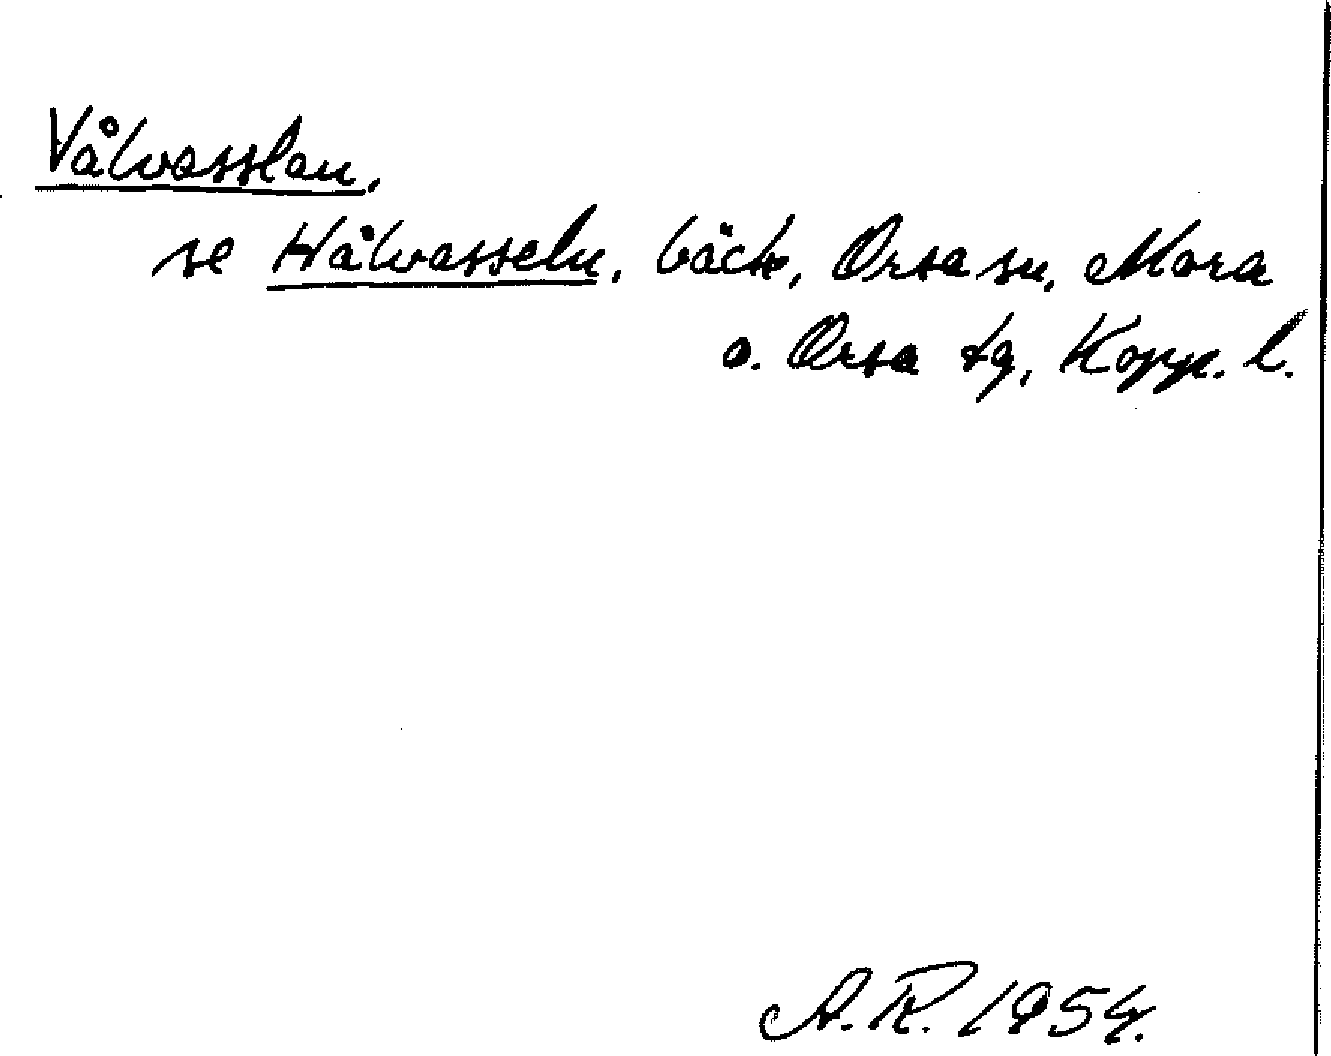 Vålvasslan,
se Hålvasseln, bäck, Orsa sn, Mora
o. Orsa tg, Kopp. l.
A. R. 1954.